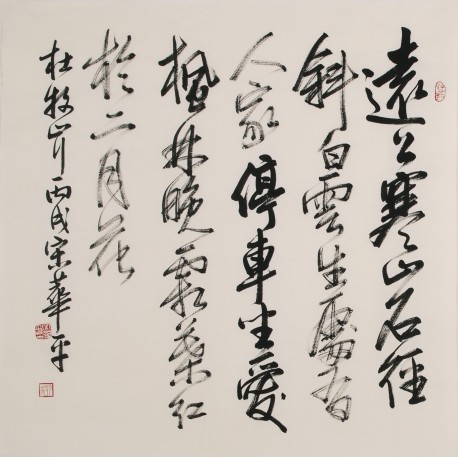 遠上寒山石徑
斜白雲生處有
人家停車坐愛
楓林晚霜葉紅
於二月花
杜牧山行丙戌宋華平